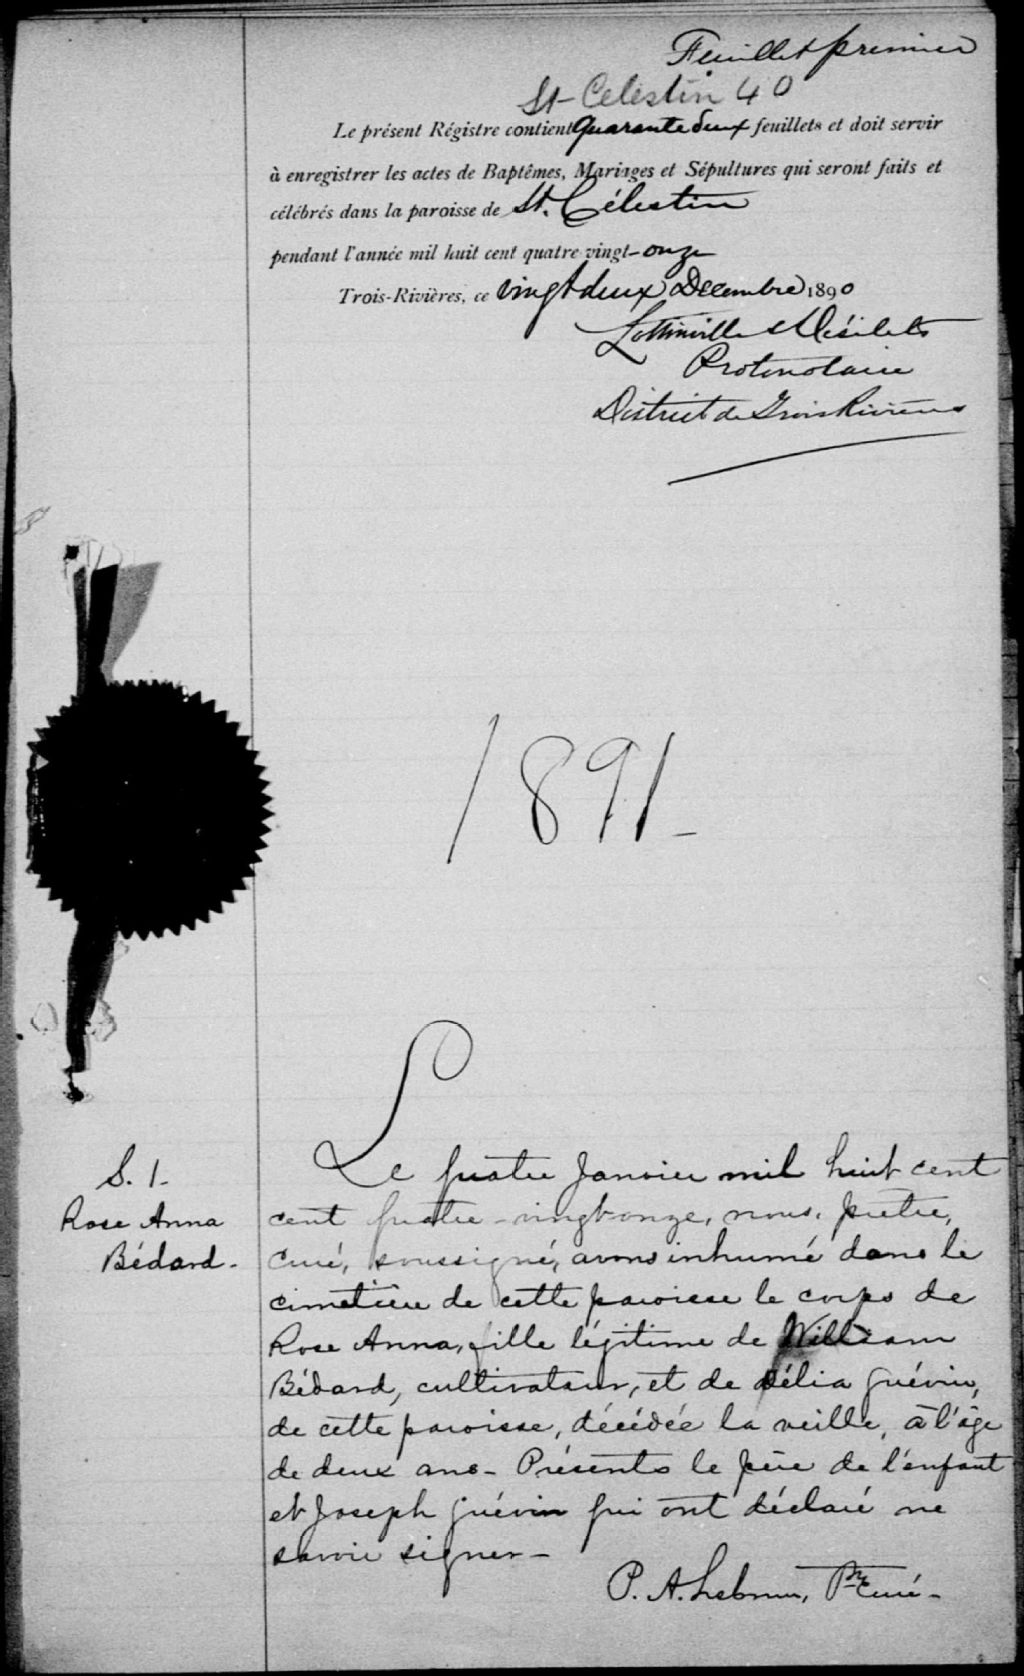 Feuillet premier
St-Celestin 40
Le présent Régistre contient quarante deux feuillets et doit servir
à enregistrer les actes de Baptêmes, Mariages et Sépultures qui seront faits et
célébrés dans la paroisse de St. Célestin
pendant l'année mil huit cent quatre vingt-onze
Trois-Rivières, ce vingt deux Decembre 1890
Lottinville & Désilets
Protonotaire
District de Trois Rivières
1891-
S. 1.
Rose Anna
Bédard.
Le quatre Janvier mil huit cent
cent quatre-vingt-onze, nous, prêtre,
curé, soussigné, avons inhumé dans le
cimetière de cette paroisse le corps de
Rose Anna, fille légitime de William
Bédard, cultivateur, et de Délia Guévin,
de cette paroisse, décédée la veille, à l'âge
de deux ans- Présents le père de l'enfant
et Joseph Guévin qui ont déclaré ne
savoir signer-
P. A. Lebrun, Ptre curé-